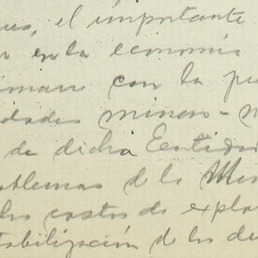 es, el importante
en la economía
con la pe
dades minero-m
de dicha Entidad
oblemas de la Me
los costos de explo
tabilización de los de